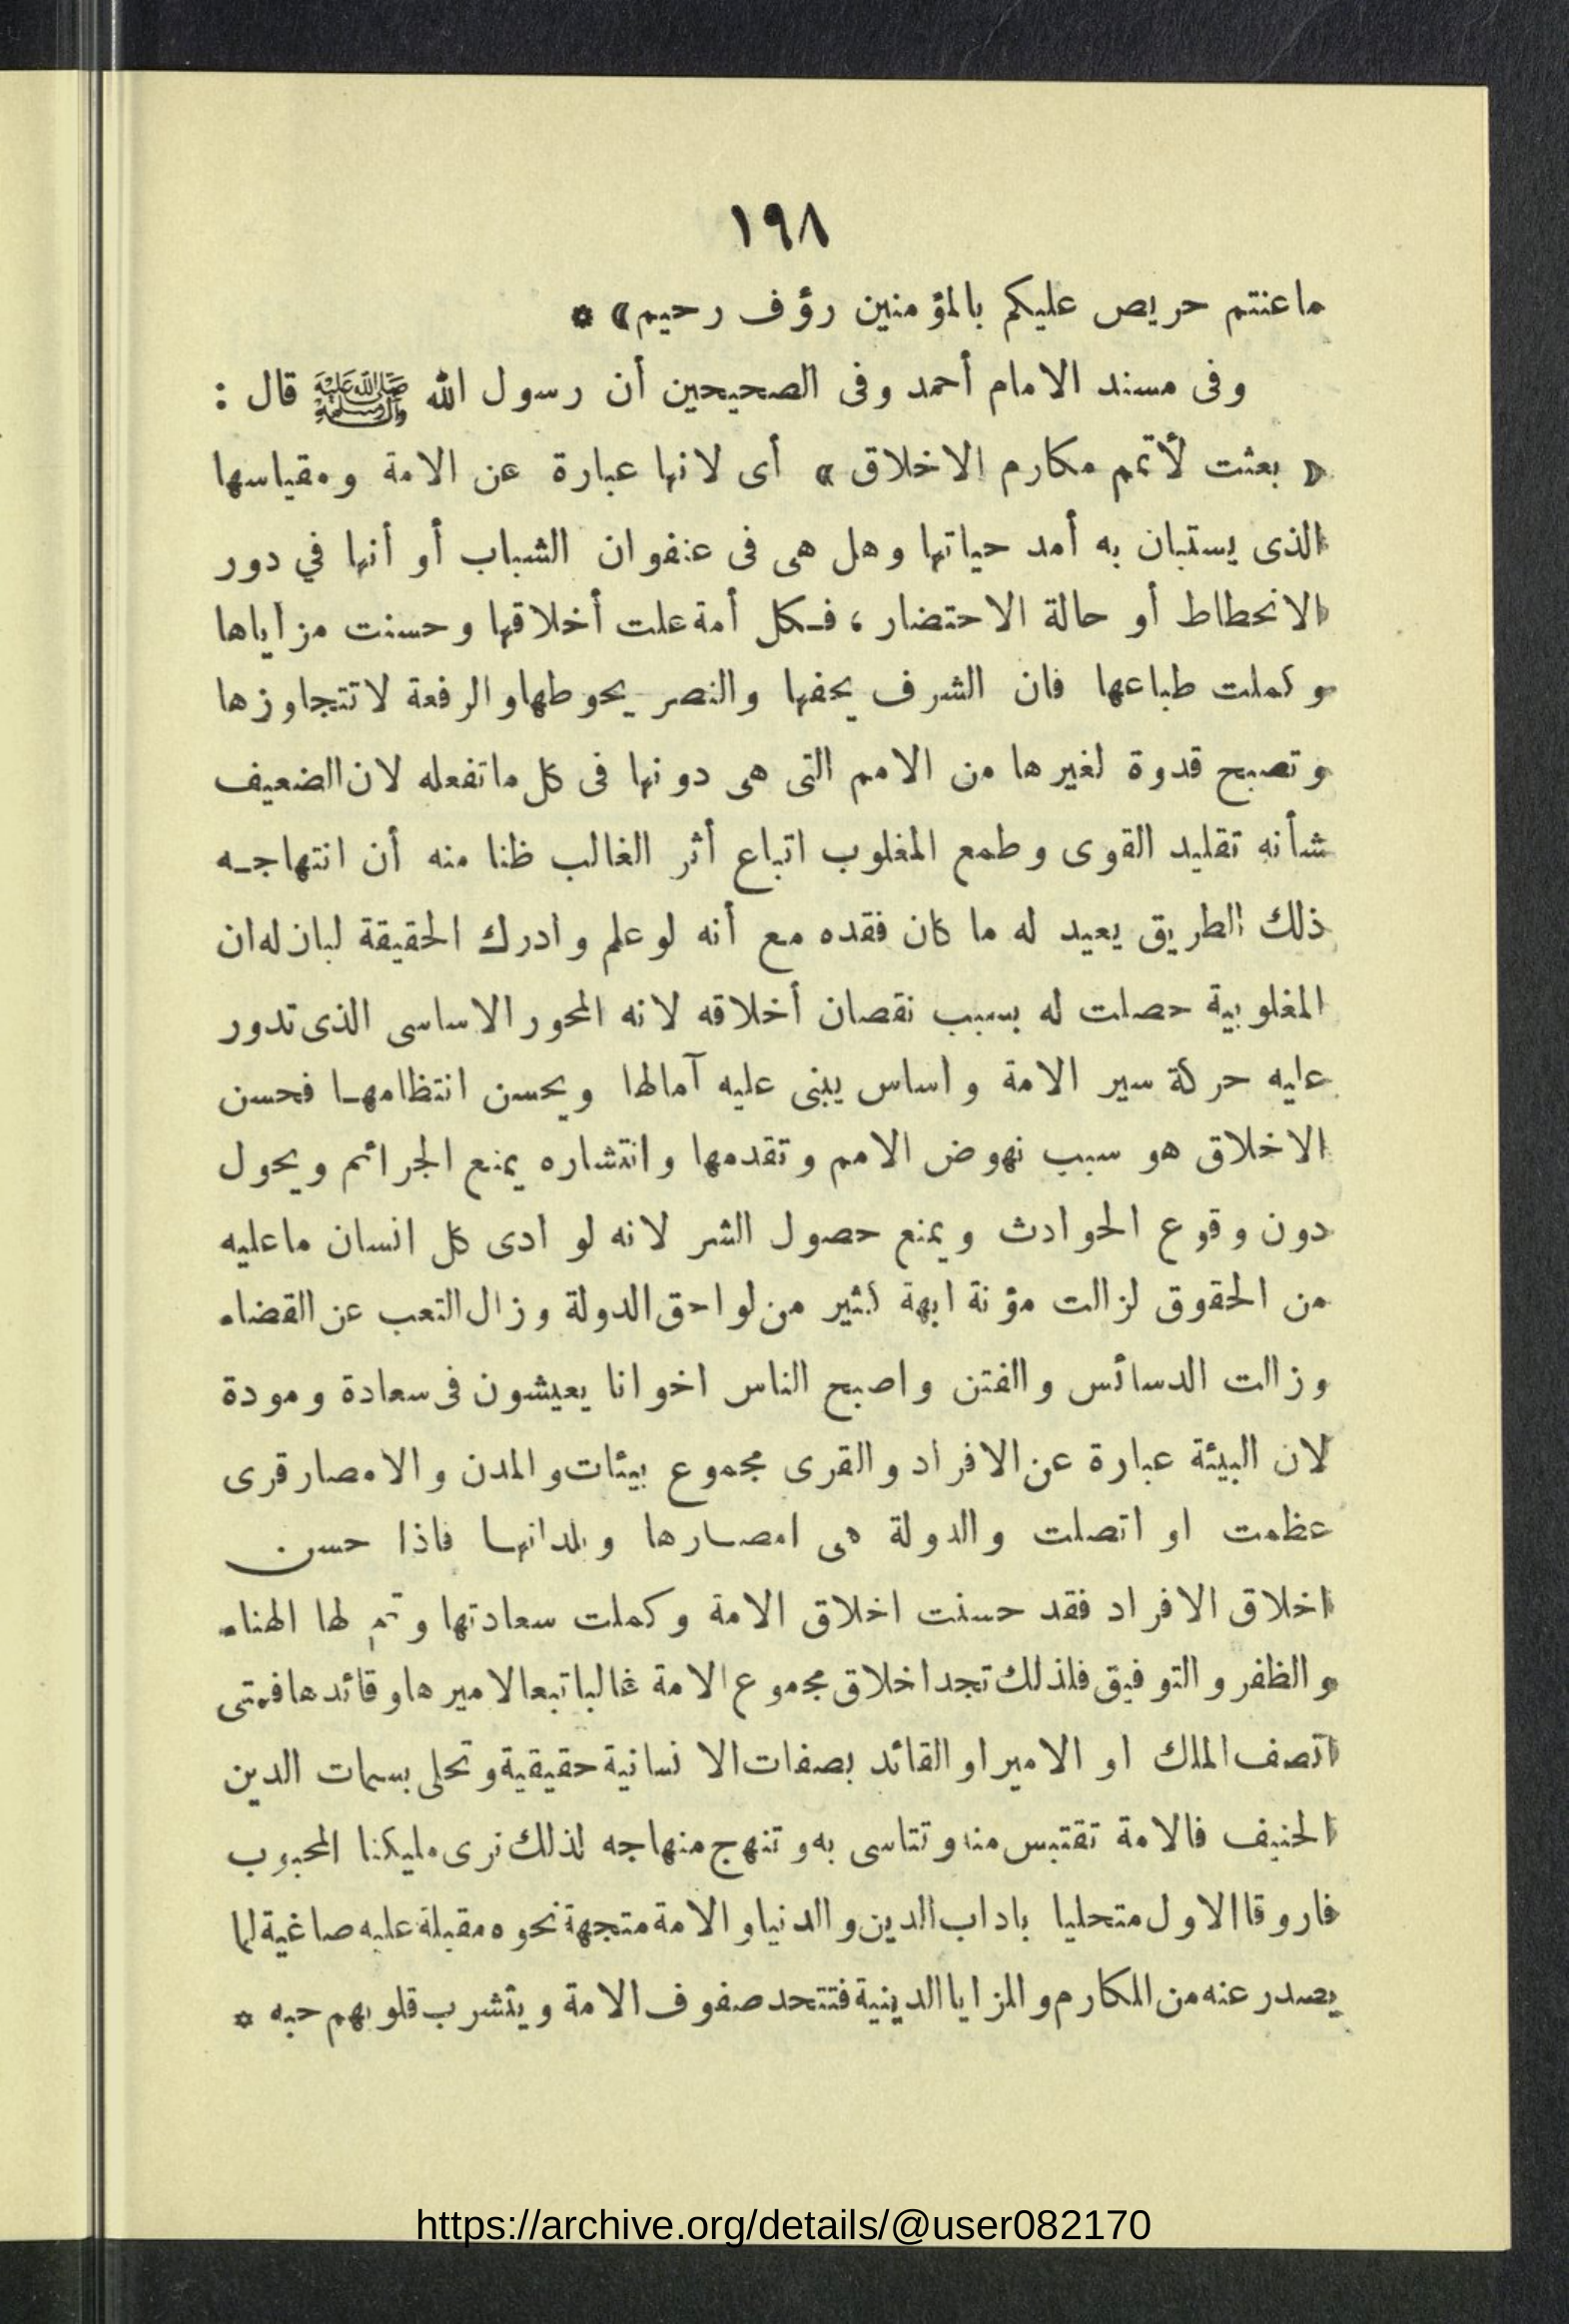 ١٩٨
ما عنتم حريص عليكم بالمؤمنين رؤف رحيم» *
وفى مسند الامام أحمد وفى الصحيحين أن رسول الله ﷺ قال :
« بعثت لأتمم مكارم الاخلاق » أى لانها عبارة عن الامة ومقياسها
الذى يستبان به أمد حياتها وهل هى فى عنفوان الشباب أو أنها في دور
الانحطاط أو حالة الاحتضار ، فـكل أمة علت أخلاقها وحسنت مزاياها
وكملت طباعها فان الشرف يحفها والنصر يحوطها والرفعة لا تتجاوزها
وتصبح قدوة لغيرها من الامم التى هى دونها فى كل ما تفعله لان الضعيف
شأنه تقليد القوى وطمع المغلوب اتباع أثر الغالب ظنا منه أن انتهاجـه
ذلك الطريق يعيد له ما كان فقده مع أنه لو علم وادرك الحقيقة لبان له ان
المغلوبية حصلت له بسبب نقصان أخلاقه لانه المحور الاساسى الذى تدور
عليه حركة سير الامة واساس يبنى عليه آمالها ويحسن انتظامهـا فحسن
الاخلاق هو سبب نهوض الامم وتقدمها وانتشاره يمنع الجرائم ويحول
دون وقوع الحوادث ويمنع حصول الشر لانه لو ادى كل انسان ما عليه
من الحقوق لزالت مؤنة ابهة كثير من لواحق الدولة وزال التعب عن القضاء
وزالت الدسائس والفتن واصبح الناس اخوانا يعيشون فى سعادة ومودة
لان البيئة عبارة عن الافراد والقرى مجموع بيئات والمدن والامصار قرى
عظمت او اتصلت والدولة هى امصـارها وبلدانهـا فاذا حسن
اخلاق الافراد فقد حسنت اخلاق الامة وكملت سعادتها وتم لها الهناء
والظفر والتوفيق فلذلك تجد اخلاق مجموع الامة غالبا تبعا لاميرها وقائدها فمتى
اتصف الملك او الامير او القائد بصفات الانسانية حقيقية وتحلى بسمات الدين
الحنيف فالامة تقتبس منه وتتاسى به وتنهج منهاجه لذلك نرى مليكنا المحبوب
فاروقا الاول متحليا باداب الدين والدنيا والامة متجهة نحوه مقبلة عليه صاغية لما
يصدر عنه من المكارم والمزايا الدينية فتتحد صفوف الامة ويتشرب قلوبهم حبه *
https://archive.org/details/@user082170